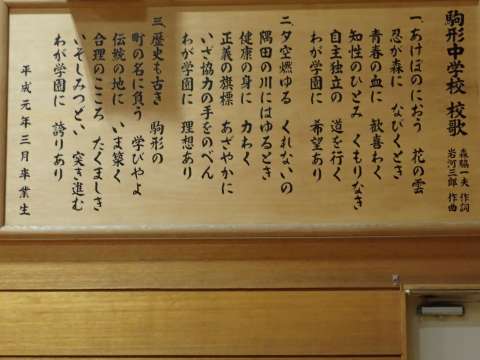 駒形中学校 校歌
森脇一夫 作詞
岩河三郎 作曲
一、あけぼのにおう 花の雲
忍が森に なびくとき
青春の血に 歓喜わく
知性のひとみ くもりなき
自主独立の 道を行く
わが学園に 希望あり
二、夕空燃ゆる くれないの
隅田の川にはゆるとき
健康の身に 力わく
正義の旗標 あざやかに
いざ協力の手をのべん
わが学園に 理想あり
三、歴史も古き 駒形の
町の名に負う 学びやよ
伝統の地に いま築く
合理のこころ たくましき
いそしみつどい 突き進む
わが学園に 誇りあり
平成元年三月卒業生